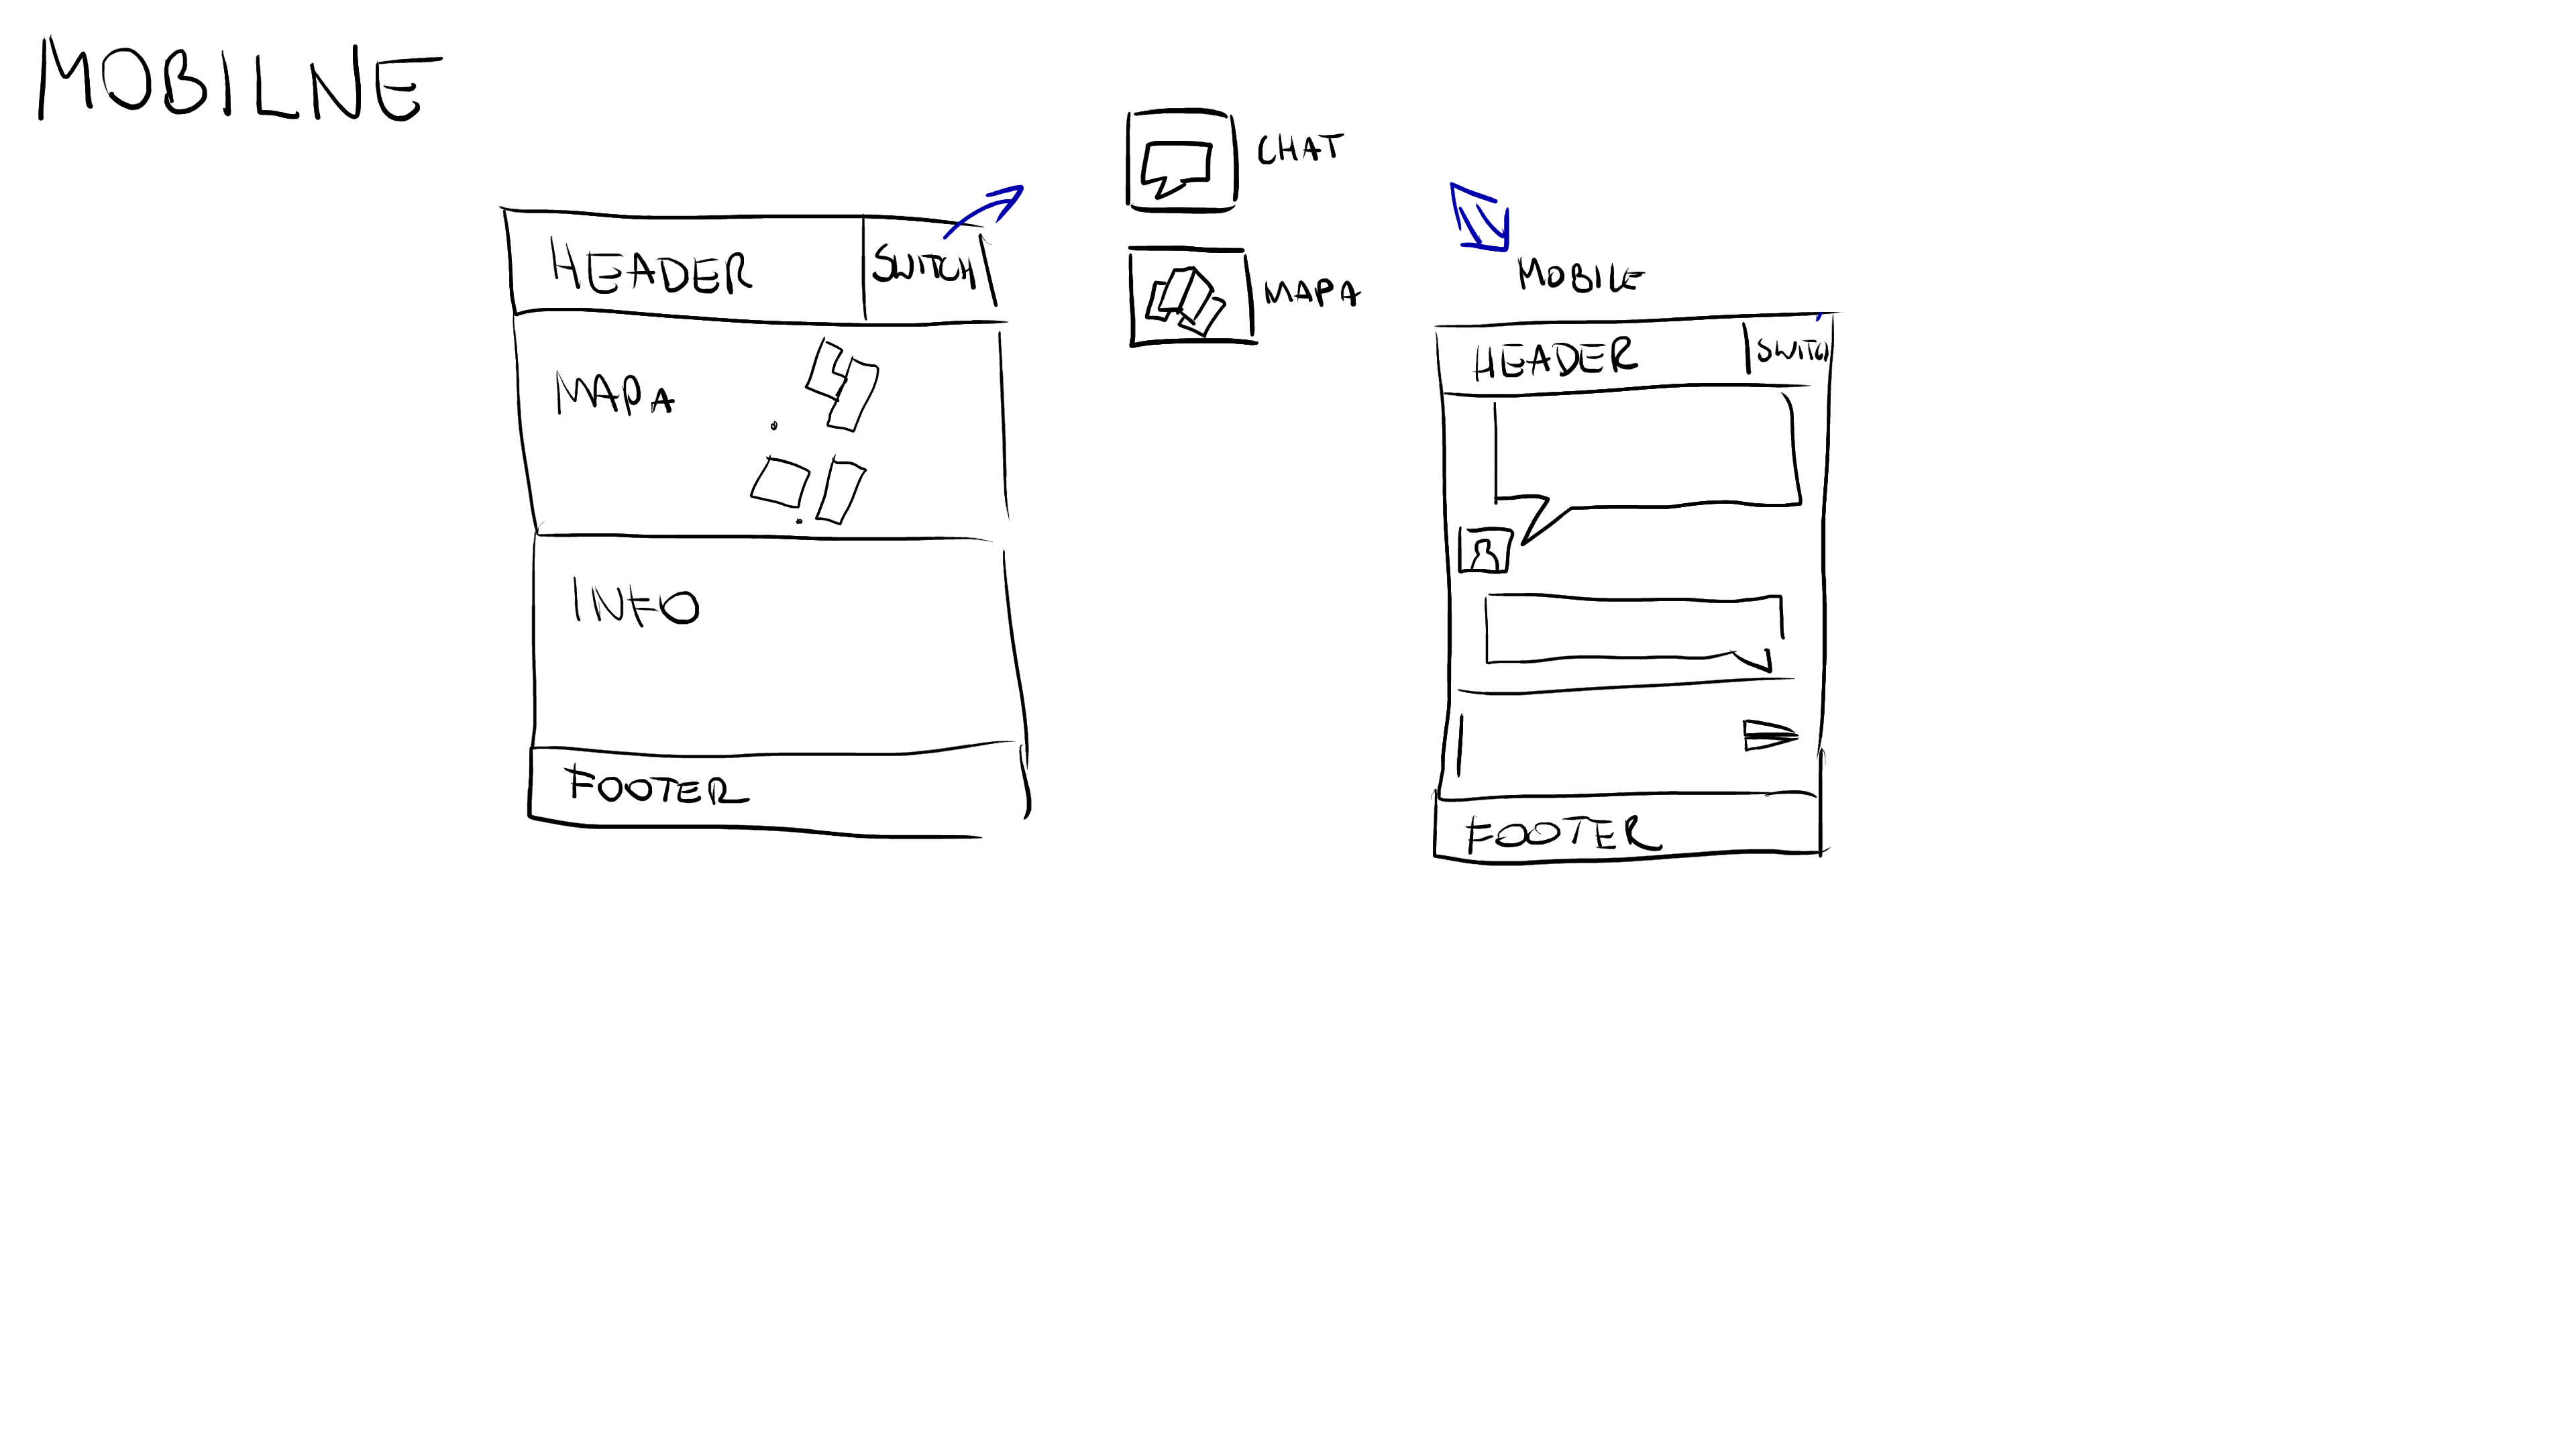 MOBILNE
HEADER
SWITCH
MAPA
INFO
FOOTER
CHAT
MAPA
MOBILE
HEADER
SWITCH
FOOTER